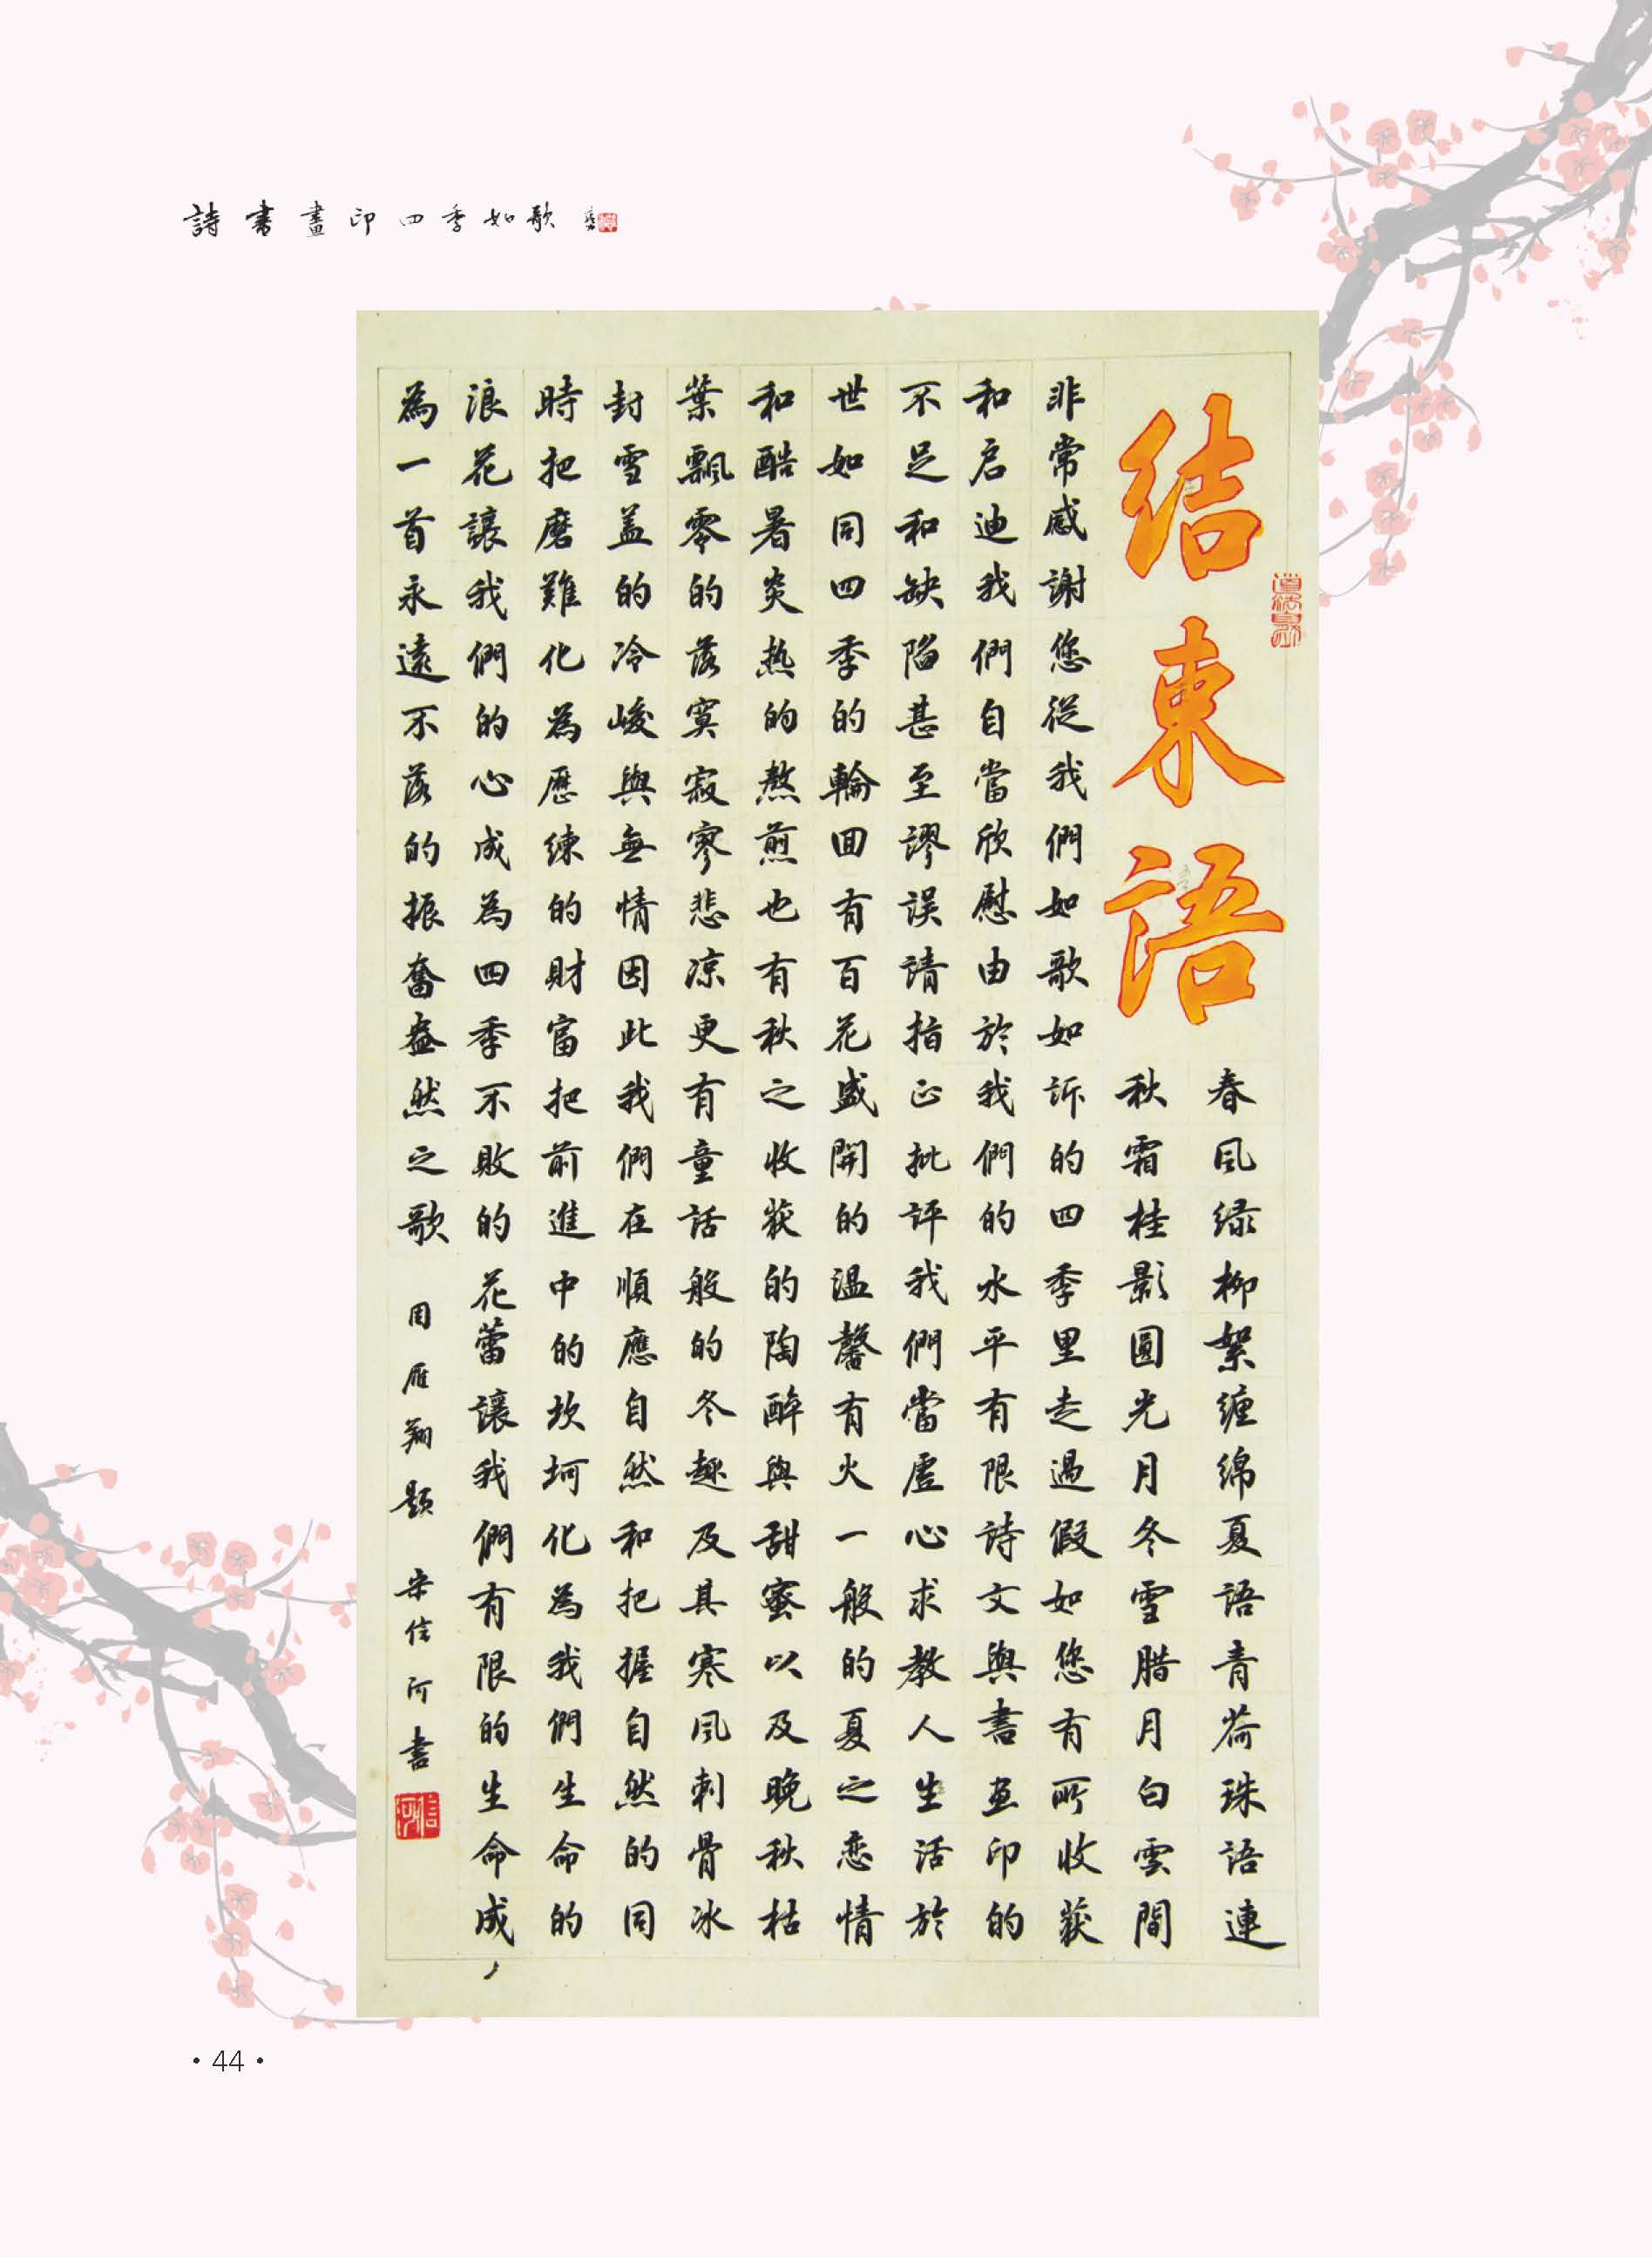 詩書畫印四季如歌
结束語
春風绿柳絮缠绵夏語青荷珠語連
秋霜桂影圓光月冬雪腊月白雲間
非常感謝您從我們如歌如訴的四季里走過假如您有所收获
和启迪我們自當欣慰由於我們的水平有限詩文與書画印的
不足和缺陷甚至謬误請指正批评我們當虚心求教人生活於
世如同四季的輪回有百花盛開的温馨有火一般的夏之恋情
和酷暑炎热的熬煎也有秋之收获的陶醉與甜蜜以及晚秋枯
葉飄零的落寞寂寥悲凉更有童話般的冬趣及其寒风刺骨冰
封雪盖的冷峻與無情因此我們在順應自然和把握自然的同
時把磨難化為歷練的財富把前進中的坎坷化為我們生命的
浪花讓我們的心成為四季不败的花蕾讓我們有限的生命成，
為一首永遠不落的振奮盎然之歌 周雁翔题 宋信河書
信河
·44·